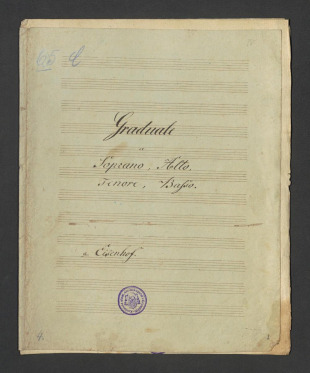 Graduale
a
Soprano, Alto.
Tenore, Basso.
Eisenhof.